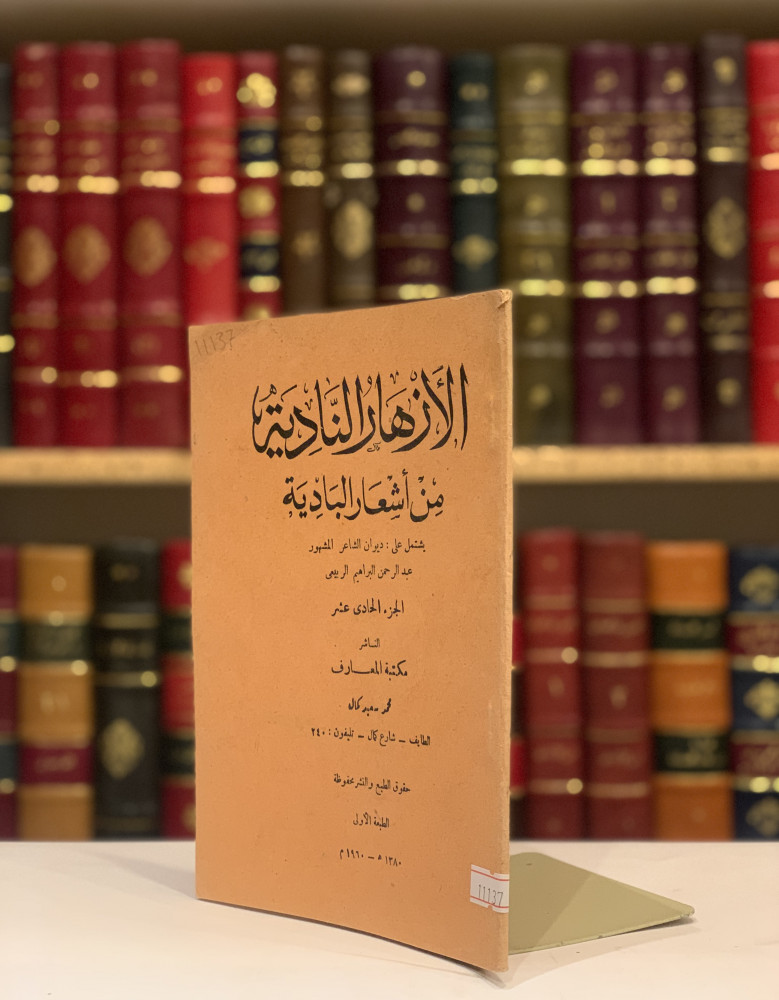 11137
الأَزهَار النَّادِيَة
مِنْ أَشعَار البَادِيَة
يشتمل على : ديوان الشاعر المشهور
عبد الرحمن البراهيم الربيعى
الجزء الحادى عشر
الناشر
مكتبة المعارف
محمد سعيد كمال
الطايف – شارع كمال – تليفون : ٢٤٠
حقوق الطبع والنشر محفوظة
الطبعة الأولى
١٣٨٠ ه – ١٩٦٠ م
11137